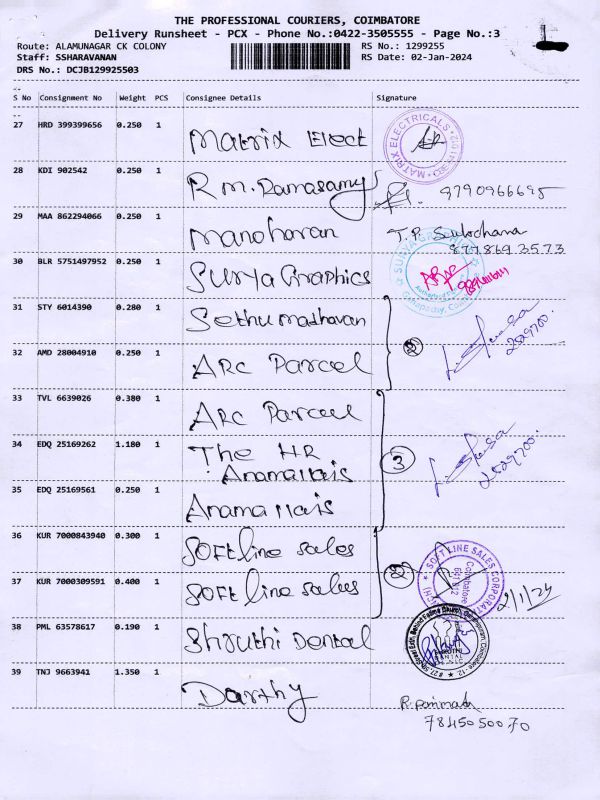 THE PROFESSIONAL COURIERS, COIMBATORE
Delivery Runsheet - PCX - Phone No.:0422-3505555 - Page No.:3
Route: ALAMUNAGAR CK COLONY RS No.: 1299255
Staff: SSHARAVANAN RS Date: 02-Jan-2024
DRS No.: DCJB129925503
S No Consignment No Weight PCS Consignee Details Signature
27 HRD 399399656 0.250 1 Matrix Elect
MATRIX ELECTRICALS
28 KDI 902542 0.250 1 R M. Ramasamy 9790966695
29 MAA 862294066 0.250 1 Manoharan T.P. Sulochana
877869 3573
30 BLR 5751497952 0.250 1 Surya Graphics
SURYA GRAPHICS
31 STY 6014390 0.280 1 Sethu Madhavan
32 AMD 28004910 0.250 1 ARC Parcel 2 2529700
33 TVL 6639026 0.380 1 ARC Parcel
34 EDQ 25169262 1.180 1 The HR
Anamallais 3 2529700
35 EDQ 25169561 0.250 1 Anamallais
36 KUR 7000843940 0.300 1 Softline Sales
SOFT LINE SALES CORPORATION
Coimbatore
641 012
37 KUR 7000309591 0.400 1 Softline Sales 2 2/1/24
38 PML 63578617 0.190 1 Shruthi Dental
DENTAL
39 TNJ 9663941 1.350 1 Darthy
78450 500 70